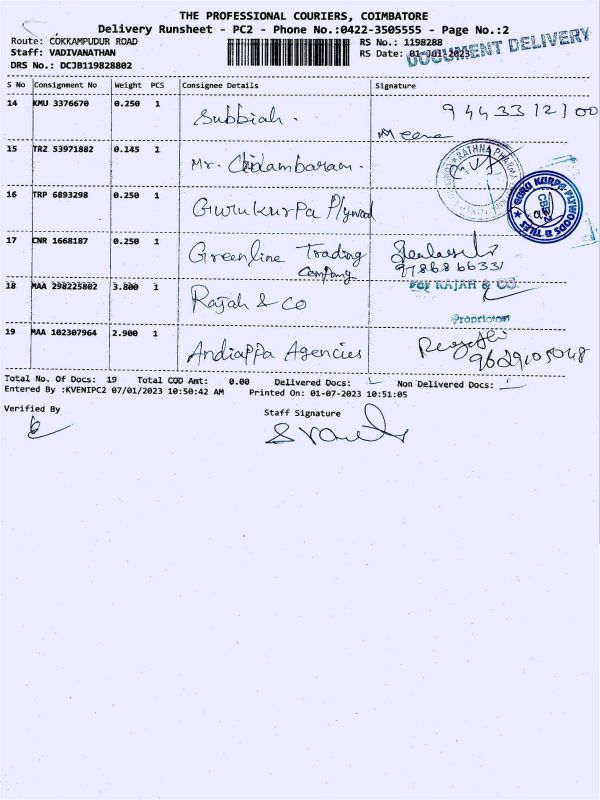 THE PROFESSIONAL COURIERS, COIMBATORE
Delivery Runsheet - PC2 - Phone No.:0422-3505555 - Page No.:2
Route: COKKAMPUDUR ROAD RS No.: 1198288
Staff: VADIVANATHAN RS Date: 01-Jul-2023
DOCUMENT DELIVERY
DRS No.: DCJB119828802
S No Consignment No Weight PCS Consignee Details Signature
14 KMU 3376670 0.250 1 Subbiah. 9443312100
Meena
15 TRZ 53971882 0.145 1 Mr. Chidambaram.
RATHNA PHARMA
16 TRP 6893298 0.250 1 Gurukurpa Plywood
GURU KARPA PLYWOODS & TILES
17 CNR 1668187 0.250 1 Greenline Trading Company
9786866331
18 MAA 298225802 3.800 1 Rajah & Co
For RAJAH & CO.
Proprietor
19 MAA 102307964 2.900 1 Andiappa Agencies
9629105048
Total No. Of Docs: 19 Total COD Amt: 0.00 Delivered Docs: Non Delivered Docs:
Entered By :KVENIPC2 07/01/2023 10:50:42 AM Printed On: 01-07-2023 10:51:05
Verified By Staff Signature